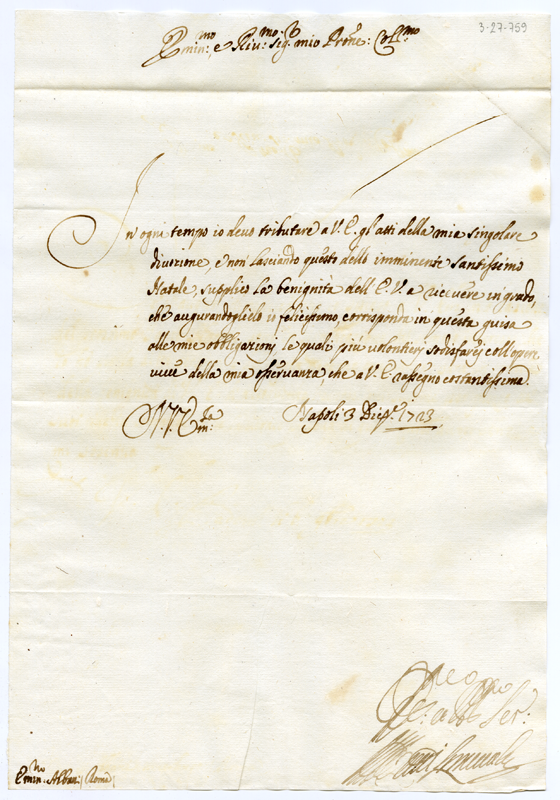 3-27-759
Emin:mo e Riu:mo Sig: mio Prone: Coll:mo
In ogni tempo io deuo tributare a V. E. gl'atti della mia singolare
diuozione, e non lasciando questo dell'imminente Santissimo
Natale, supplico la benignità dell'E. V. a riceuere in grado,
che augurandoglielo io felicissimo corrisponda in questa guisa
alle mie obbligazioni le quali più volontieri sodisfarei coll'opere
viue della mia osseruanza, che a V. E. rassegno costantissima.
Napoli 3 Dicre: 1723
Ser:
Emin:mo Albani Roma